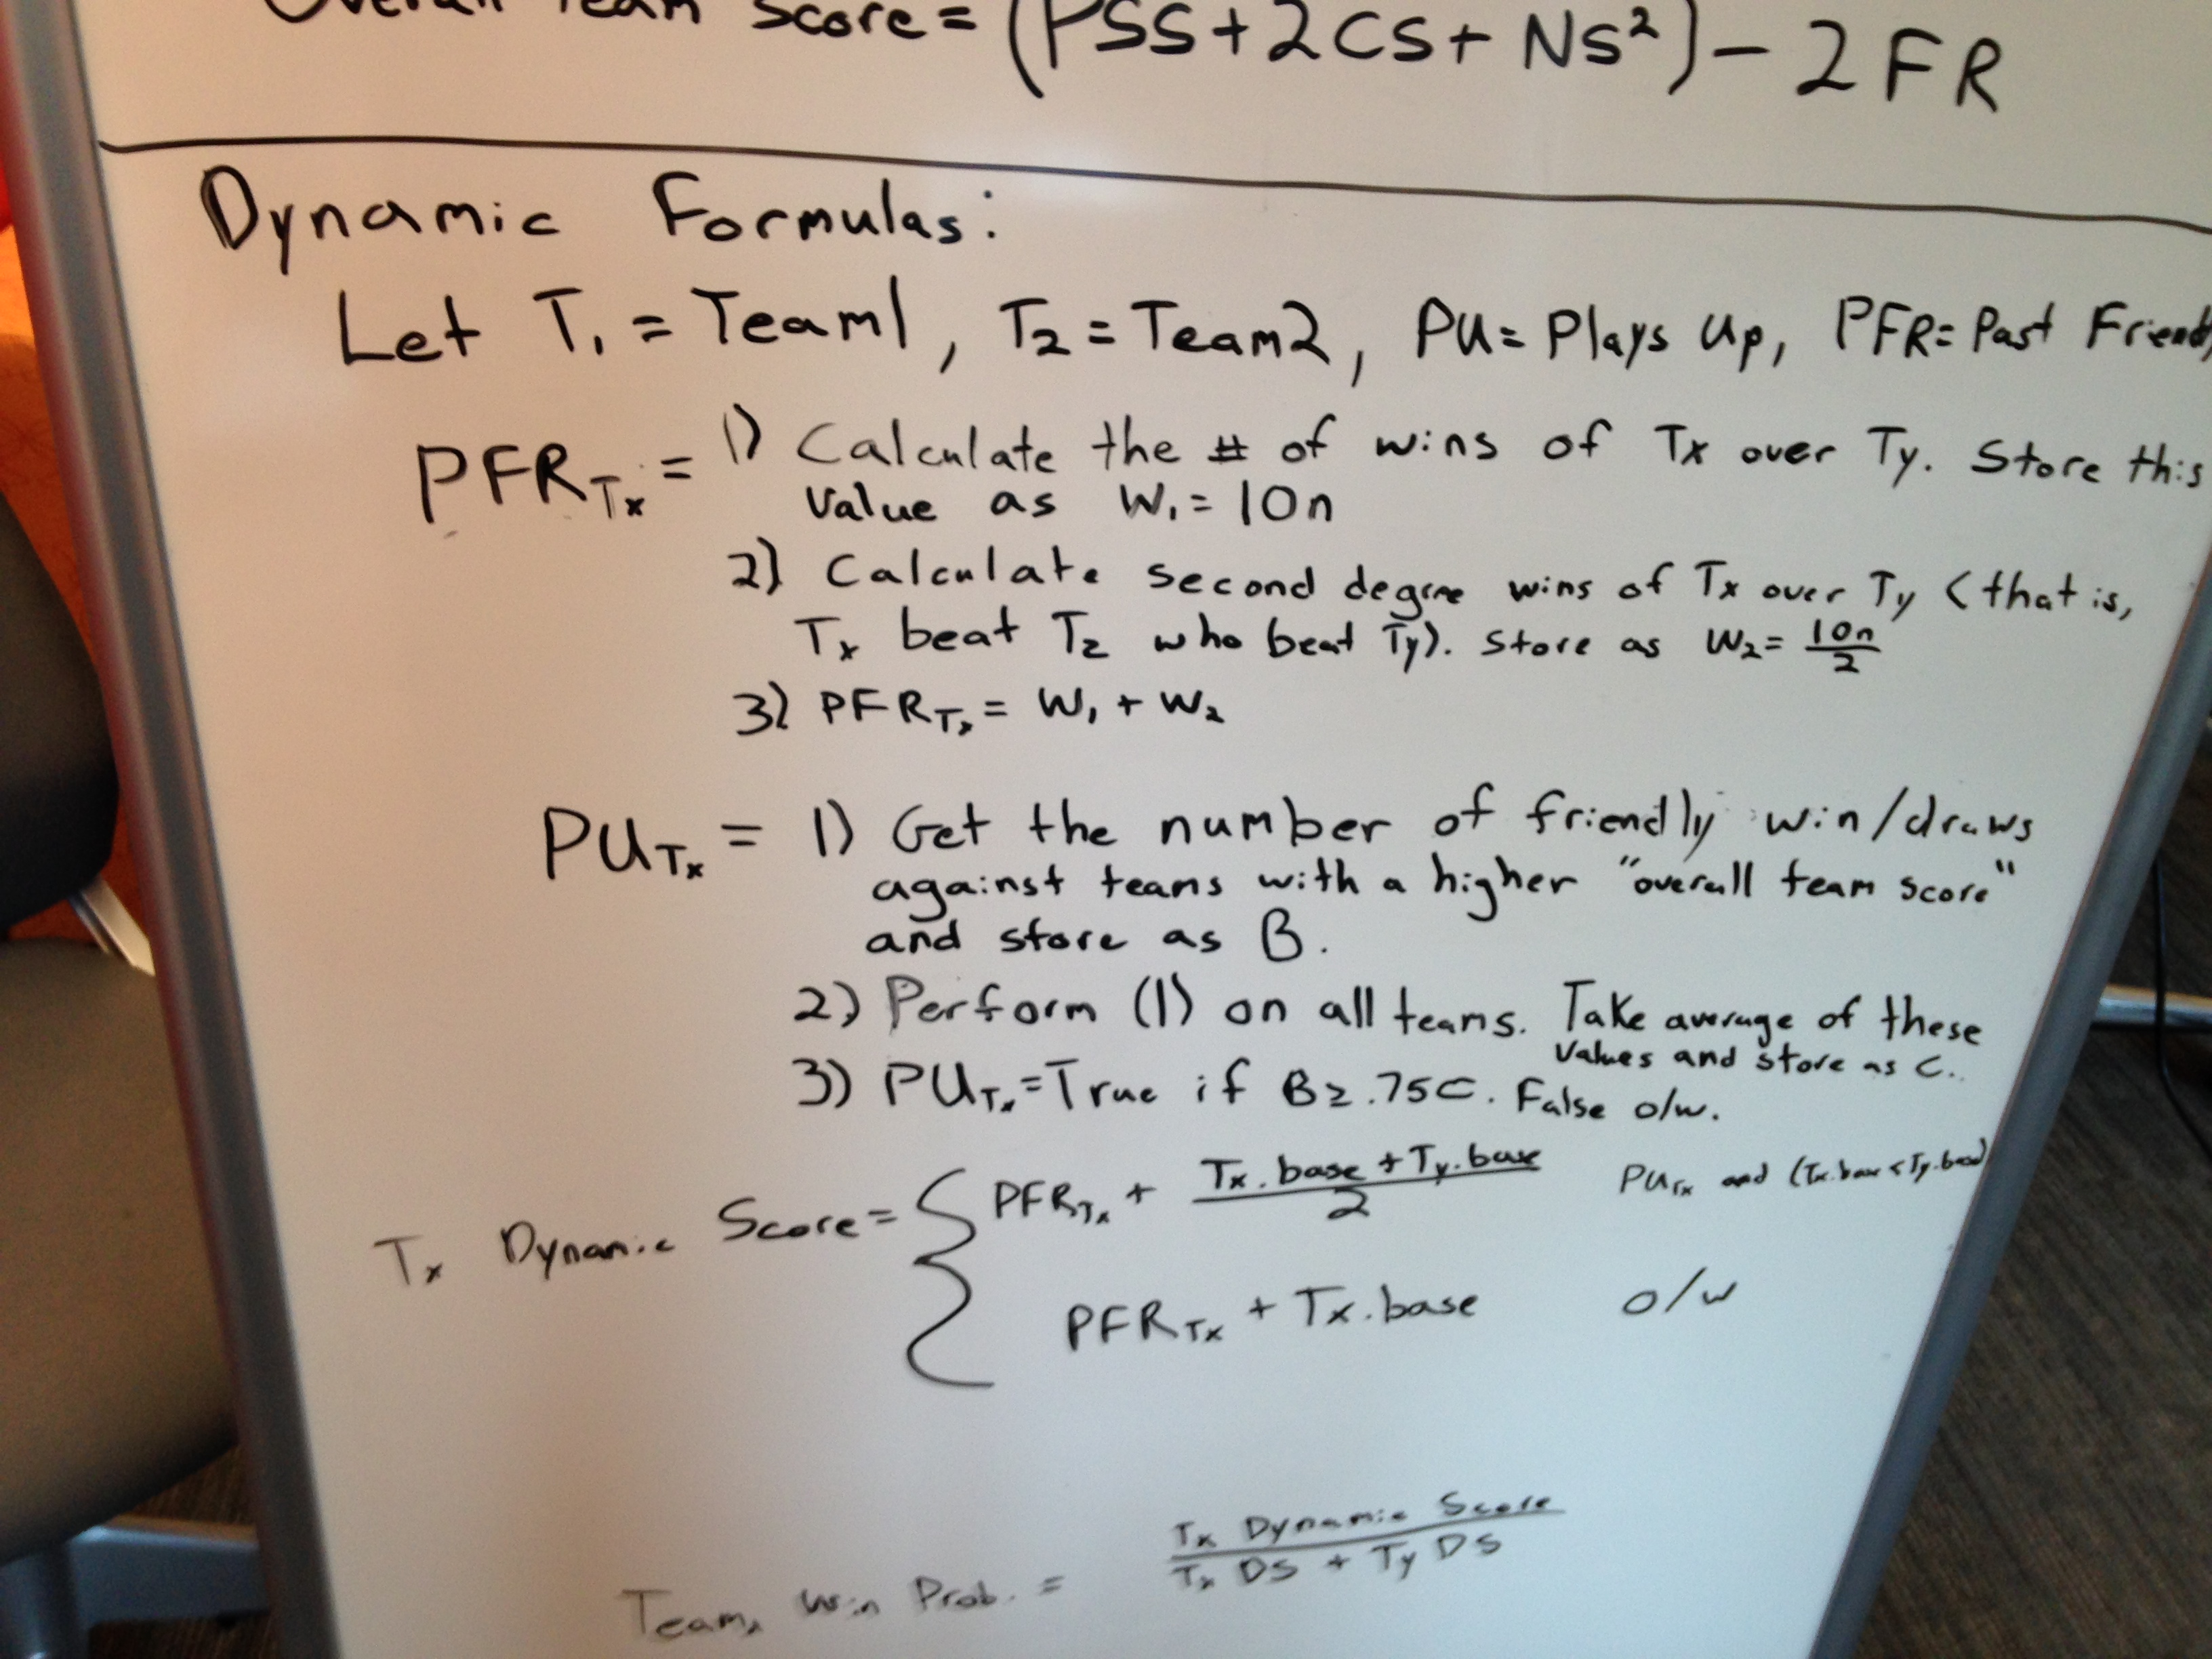 Overall Team Score = (PSS + 2CS + NS²) - 2FR
Dynamic Formulas:
Let T₁ = Team1, T₂ = Team2, PU = Plays Up, PFR = Past Friendly
PFR_Tx = 1) Calculate the # of wins of Tx over Ty. Store this
value as W₁ = 10n
2) Calculate second degree wins of Tx over Ty (that is,
Tx beat Tz who beat Ty). Store as W₂ = 10n/2
3) PFR_Tx = W₁ + W₂
PU_Tx = 1) Get the number of friendly win/draws
against teams with a higher "overall team score"
and store as B.
2) Perform (1) on all teams. Take average of these
values and store as C.
3) PU_Tx = True if B ≥ .75C. False o/w.
Tx Dynamic Score = { PFR_Tx + (Tx.base + Ty.base)/2 PU_Tx and (Tx.base < Ty.base)
PFR_Tx + Tx.base o/w
Team_x Win Prob. = Tx Dynamic Score / Tx DS + Ty DS